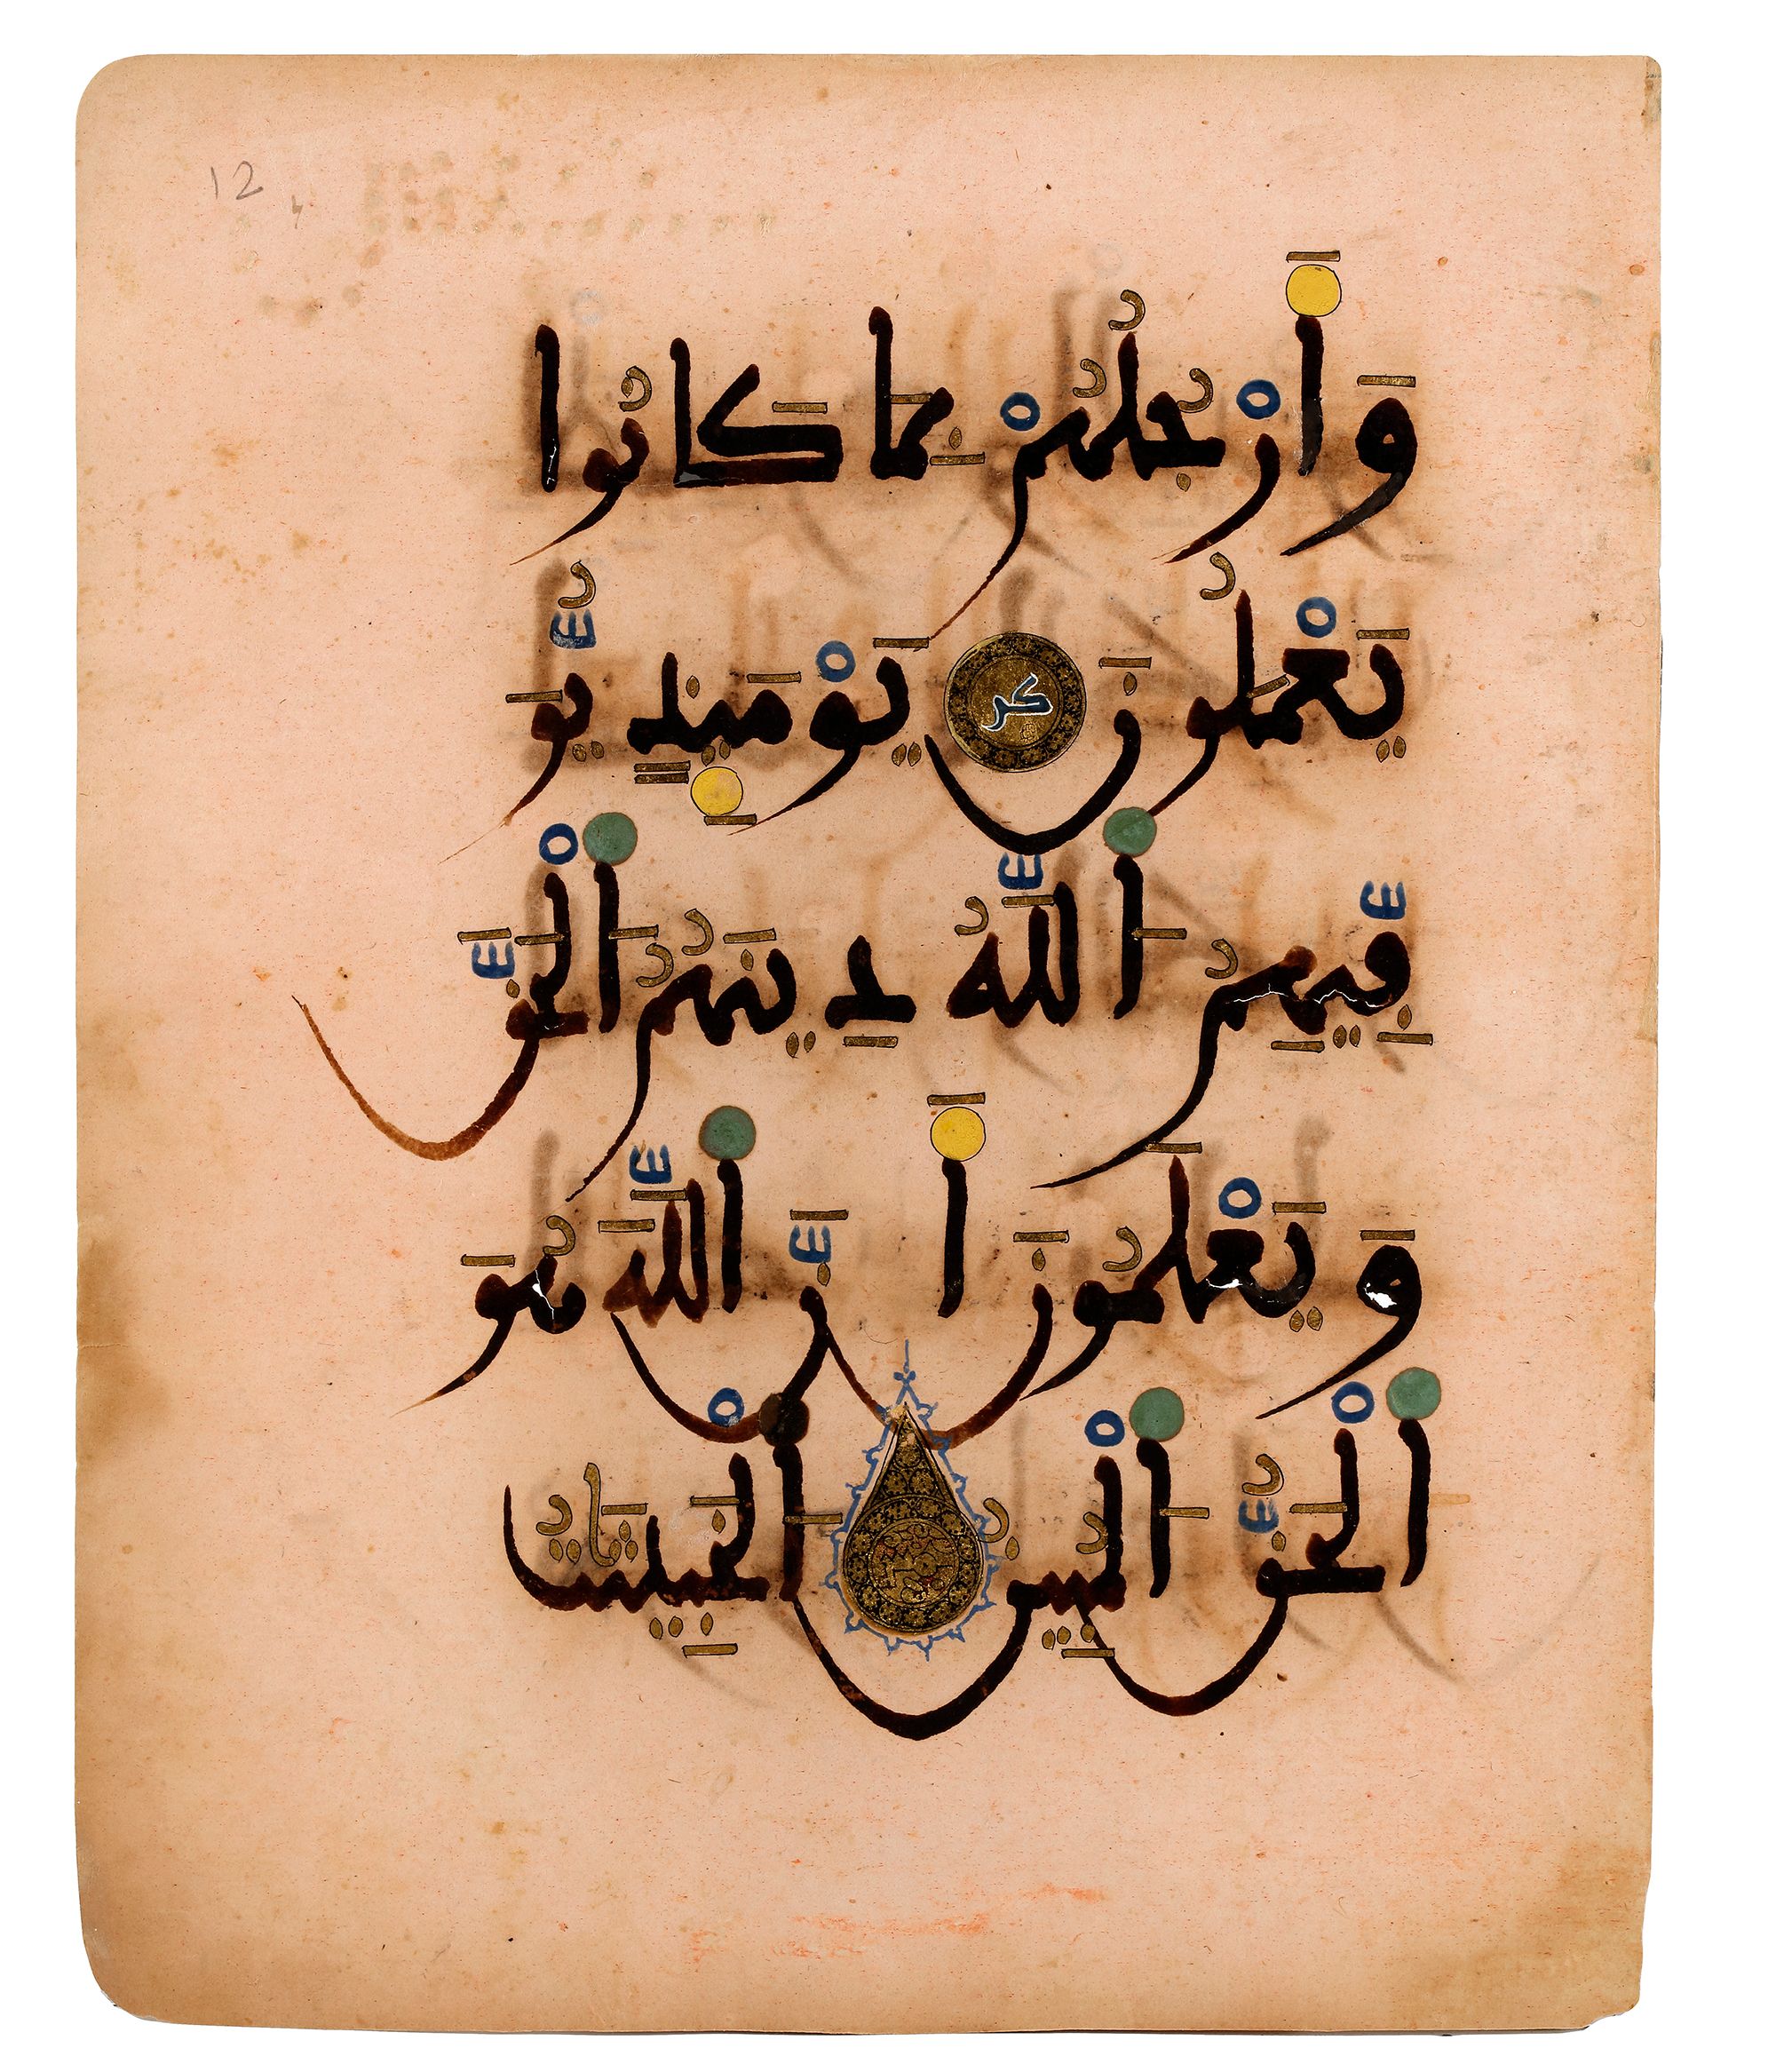 12
وَأَرْجُلُهُمْ بِمَا كَانُوا
يَعْمَلُونَ كر يَوْمَئِذٍ يُوَ
فِّيهِمُ اللَّهُ دِينَهُمُ الْحَقَّ
وَيَعْلَمُونَ أَنَّ اللَّهَ هُوَ
الْحَقُّ الْمُبِينُ الْخَبِيثَاتُ